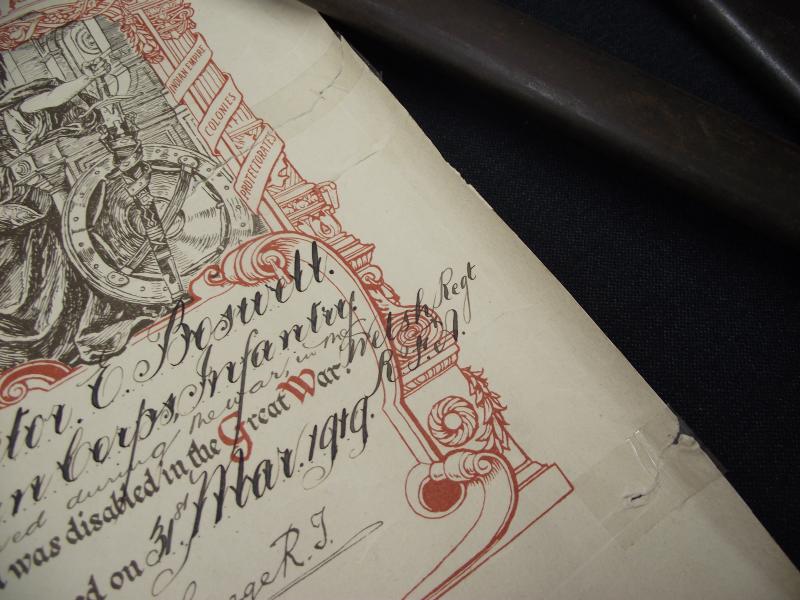 INDIAN EMPIRE
COLONIES
PROTECTORATES
tor. E. Boswell.
n Corps, Infantry.
ed during the war, in the Welsh Regt
was disabled in the Great War. R.F.A.
ed on 31st Mar. 1919.
George R.I.